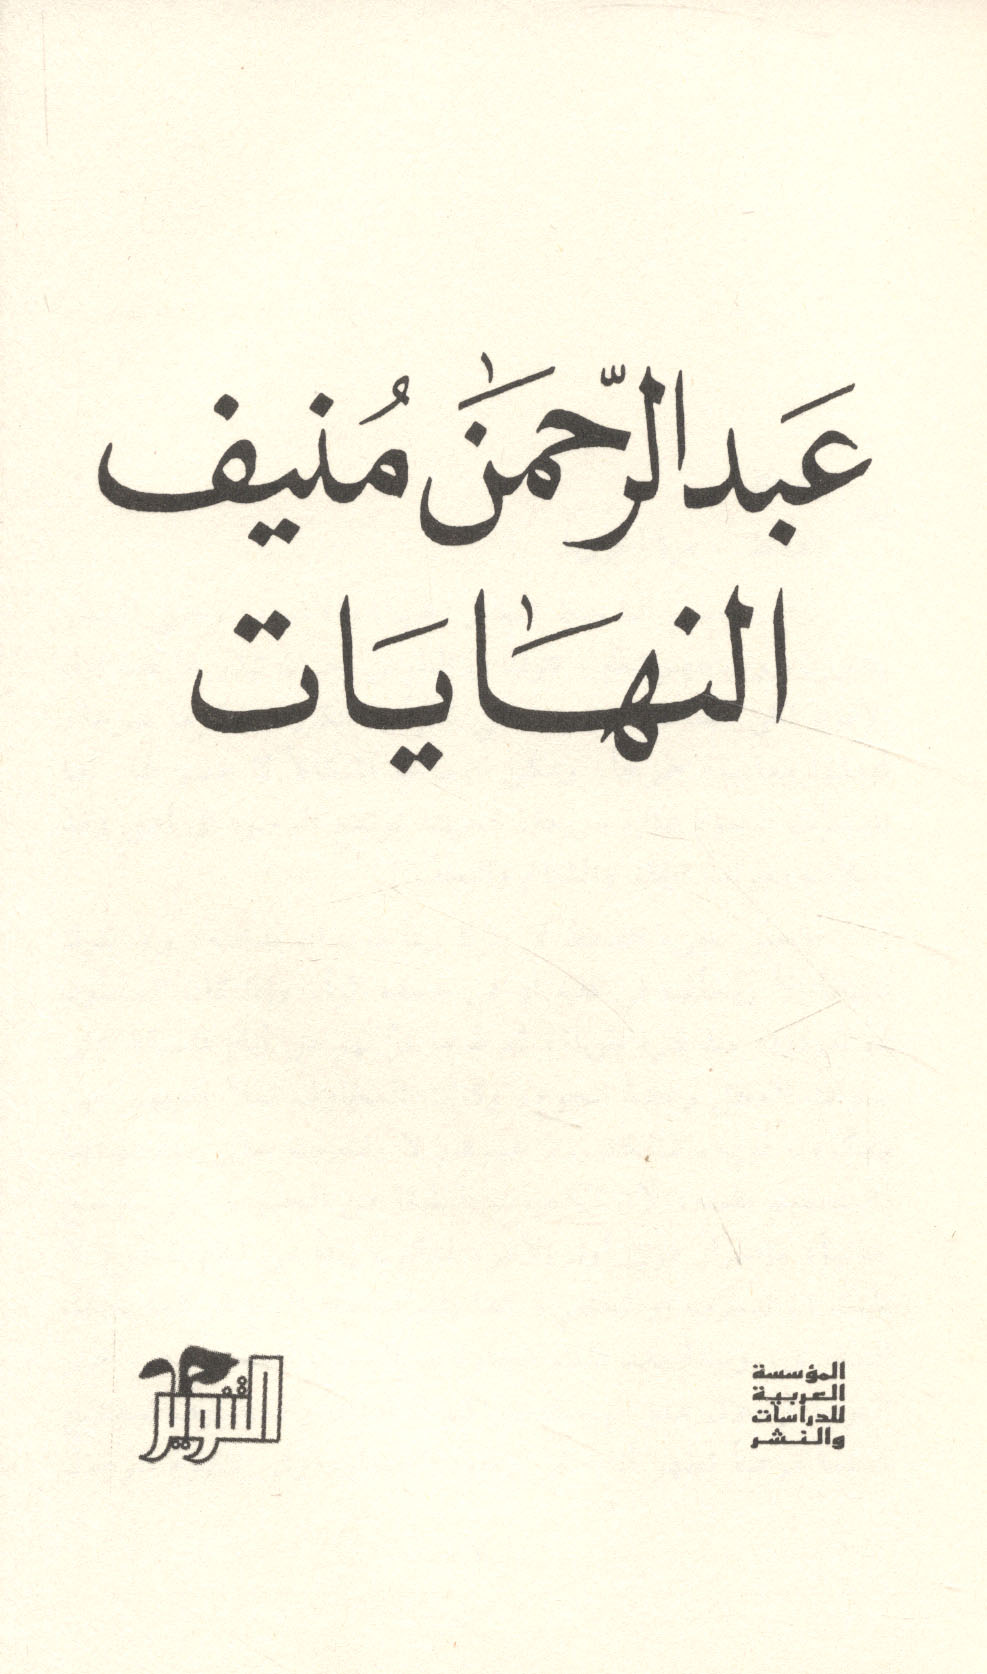 عَبد الرَّحمنٰ مُنيف
النهَٰايَات
المؤسسة
العربية
للدراسات
والنشر
التنوير